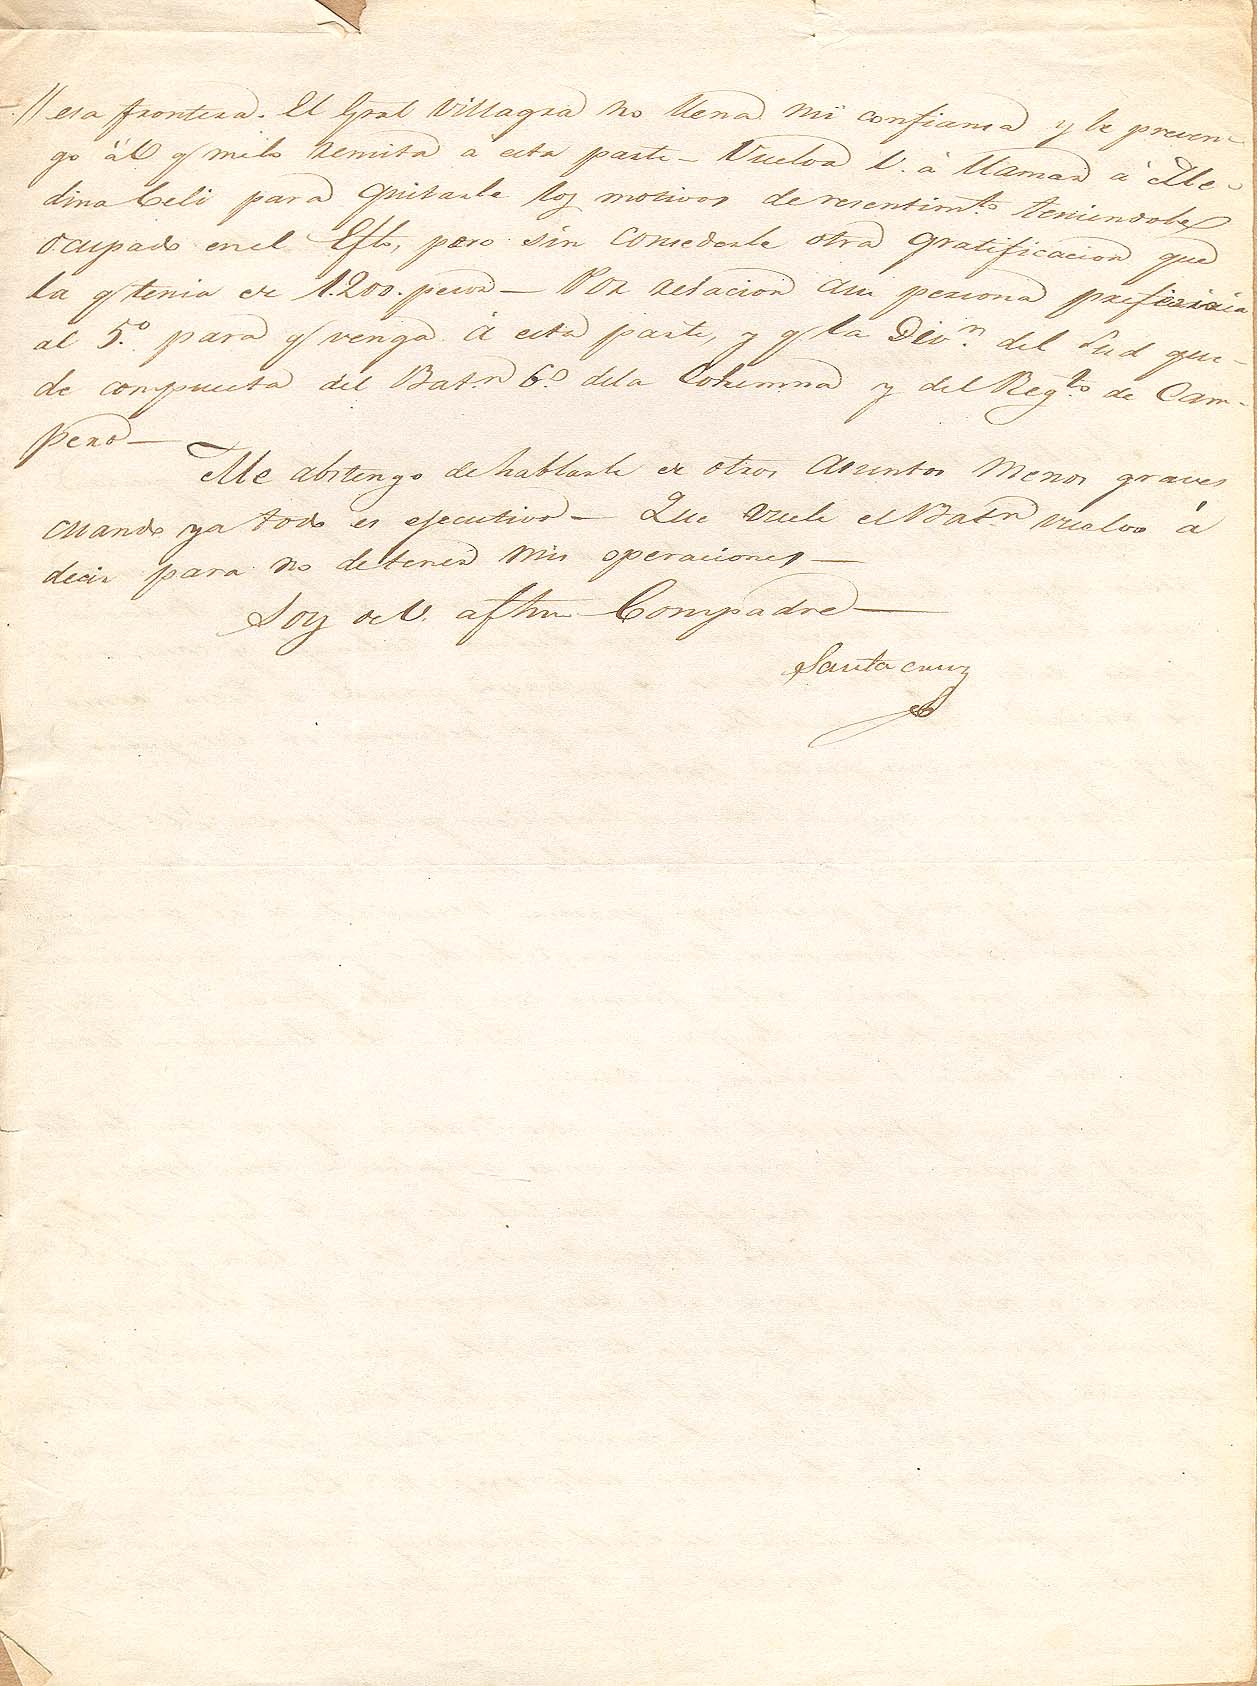 // esa frontera. El Gral Villagra no llena mi confiansa y le preven-
go á V q̃ melo remita a esta parte – Vuelva V. á llamar á Me-
dina Celi para quitarle los motivos de resentimto teniendole
ocupado en el Efto, pero sin consederle otra gratificacion que
la q̃ tenia de 1.200. pesos – Por relacion a su persona preferiria
al 5.º para q̃ venga á esta parte, y q̃ la Divn. del Sud que-
de compuesta del Batn 6.º dela Columna y del Regto de Cam-
pero –
Me abstengo de hablarle de otros asuntos menos graves
cuando ya todo es ejecutivo – Que vuele el Batn vuelvo á
decir para no detener mis operaciones –
Soy de V. afmo Compadre –
Santa cruz